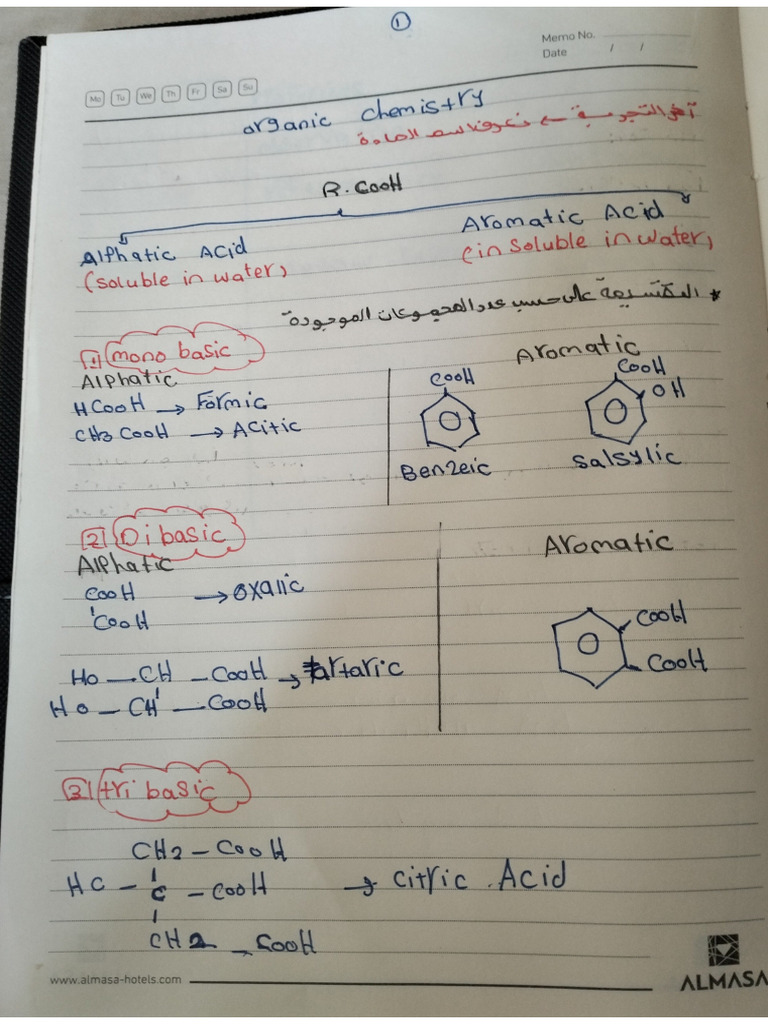 1
Memo No.
Date / /
Mo Tu We Th Fr Sa Su
organic chemistry
R.COOH
Alphatic Acid
(soluble in water)
Aromatic Acid
(in soluble in water)
* التقسيمة على حسب عدد المجموعات الموجودة
1 mono basic
Alphatic
HCOOH → Formic
CH3COOH → Acitic
Aromatic
COOH
Benzeic
COOH
OH
Salsylic
2 Di basic
Alphatic
COOH → oxalic
COOH
HO — CH — COOH → tartaric
HO — CH — COOH
Aromatic
COOH
COOH
3 tri basic
CH2 — COOH
HC — C — COOH → Citric . Acid
CH2 — COOH
www.almasa-hotels.com
ALMASA